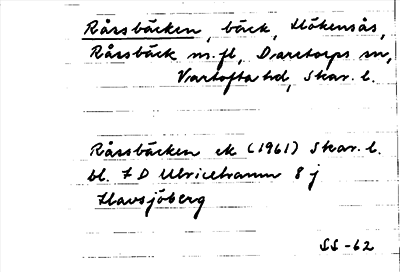 Råssbäcken, bäck, Hökensås,
Råssbäck m.fl, Daretorps sn,
Vartofta hd, Skar. l.
Råssbäcken ek (1961) Skar. l.
bl. 7 D Ulricehamn 8 j
Havsjöberg
SS-62